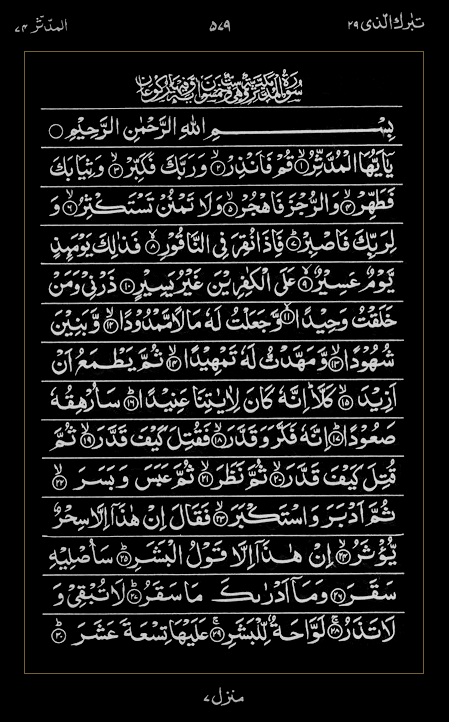 تبٰرك الّذی ٢٩ ٥٧٩ المدّثر ٧٤
بِسْــــــمِ اللهِ الرَّحْمٰنِ الرَّحِيْمِ ○
يٰۤاَيُّهَا الْمُدَّثِّرُ ۙ﴿١﴾ قُمْ فَاَنْذِرْ ۪ۙ﴿٢﴾ وَرَبَّكَ فَكَبِّرْ ۪ۙ﴿٣﴾ وَثِيَابَكَ
فَطَهِّرْ ۪ۙ﴿٤﴾ وَالرُّجْزَ فَاهْجُرْ ۪ۙ﴿٥﴾ وَلَا تَمْنُنْ تَسْتَكْثِرُ ۪ۙ﴿٦﴾ وَ
لِرَبِّكَ فَاصْبِرْ ؕ﴿٧﴾ فَاِذَا نُقِرَ فِى النَّاقُوْرِ ۙ﴿٨﴾ فَذٰلِكَ يَوْمَئِذٍ
يَّوْمٌ عَسِيْرٌ ۙ﴿٩﴾ عَلَى الْكٰفِرِيْنَ غَيْرُ يَسِيْرٍ ﴿١٠﴾ ذَرْنِىْ وَمَنْ
خَلَقْتُ وَحِيْدًا ۙ﴿١١﴾ وَّجَعَلْتُ لَهٗ مَالًا مَّمْدُوْدًا ۙ﴿١٢﴾ وَّبَنِيْنَ
شُهُوْدًا ۙ﴿١٣﴾ وَّمَهَّدْتُّ لَهٗ تَمْهِيْدًا ۙ﴿١٤﴾ ثُمَّ يَطْمَعُ اَنْ
اَزِيْدَ ۙ﴿١٥﴾ كَلَّا ؕ اِنَّهٗ كَانَ لِاٰيٰتِنَا عَنِيْدًا ؕ﴿١٦﴾ سَاُرْهِقُهٗ
صَعُوْدًا ؕ﴿١٧﴾ اِنَّهٗ فَكَّرَ وَقَدَّرَ ۙ﴿١٨﴾ فَقُتِلَ كَيْفَ قَدَّرَ ۙ﴿١٩﴾ ثُمَّ
قُتِلَ كَيْفَ قَدَّرَ ۙ﴿٢٠﴾ ثُمَّ نَظَرَ ۙ﴿٢١﴾ ثُمَّ عَبَسَ وَبَسَرَ ۙ﴿٢٢﴾
ثُمَّ اَدْبَرَ وَاسْتَكْبَرَ ۙ﴿٢٣﴾ فَقَالَ اِنْ هٰذَاۤ اِلَّا سِحْرٌ
يُّؤْثَرُ ۙ﴿٢٤﴾ اِنْ هٰذَاۤ اِلَّا قَوْلُ الْبَشَرِ ؕ﴿٢٥﴾ سَاُصْلِيْهِ
سَقَرَ ﴿٢٦﴾ وَمَاۤ اَدْرٰىكَ مَا سَقَرُ ؕ﴿٢٧﴾ لَا تُبْقِىْ وَ
لَا تَذَرُ ۚ﴿٢٨﴾ لَوَّاحَةٌ لِّلْبَشَرِ ۚۖ﴿٢٩﴾ عَلَيْهَا تِسْعَةَ عَشَرَ ؕ﴿٣٠﴾
منزل ٧